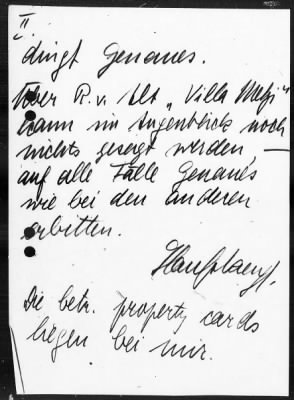 II.
dingt Genaues.
Über R. v. Alt „Villa
kann im Augenblick noch
nichts gesagt werden —
auf alle Fälle Genaues
wie bei den anderen
erbitten.
Die betr. property cards
liegen bei mir.